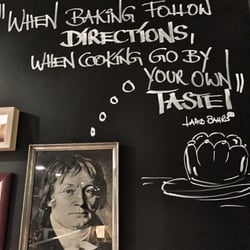 "WHEN BAKING FOLLOW
DIRECTIONS,
WHEN COOKING GO BY
YOUR OWN
TASTE!"